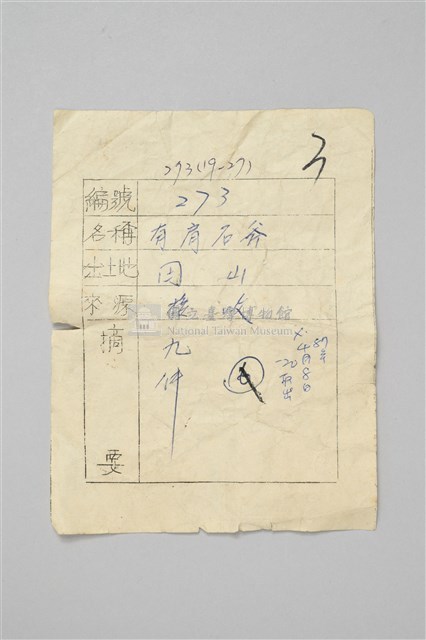 273(19-27)
3
編號 273
名稱 有肩石斧
出土地 圓山
來源 採收
摘要 九件
87年
4月8日
取出
國立臺灣博物館
National Taiwan Museum